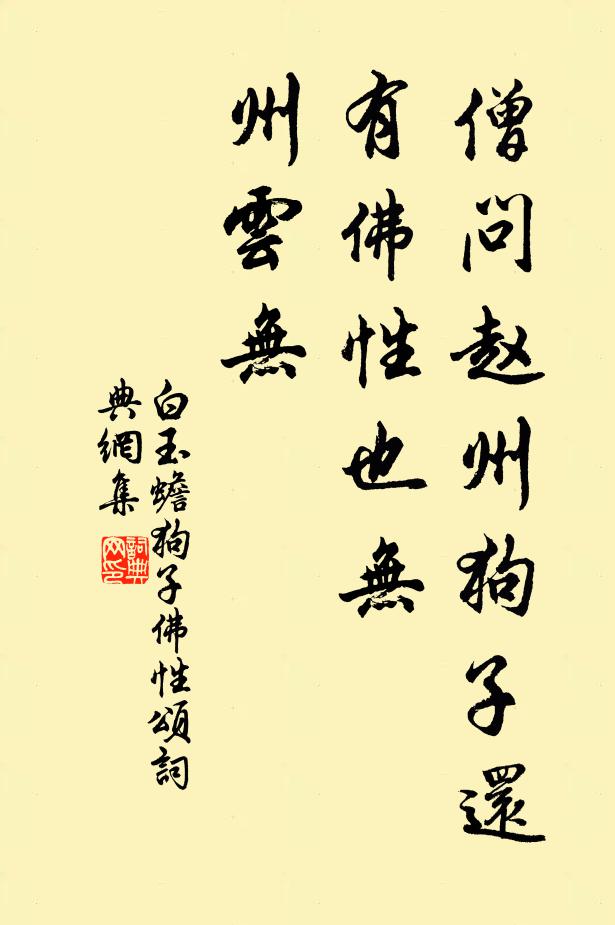 僧問赵州狗子還
有佛性也無
州雲無
白玉蟾狗子佛性頌詞
典網集
詞典
网印